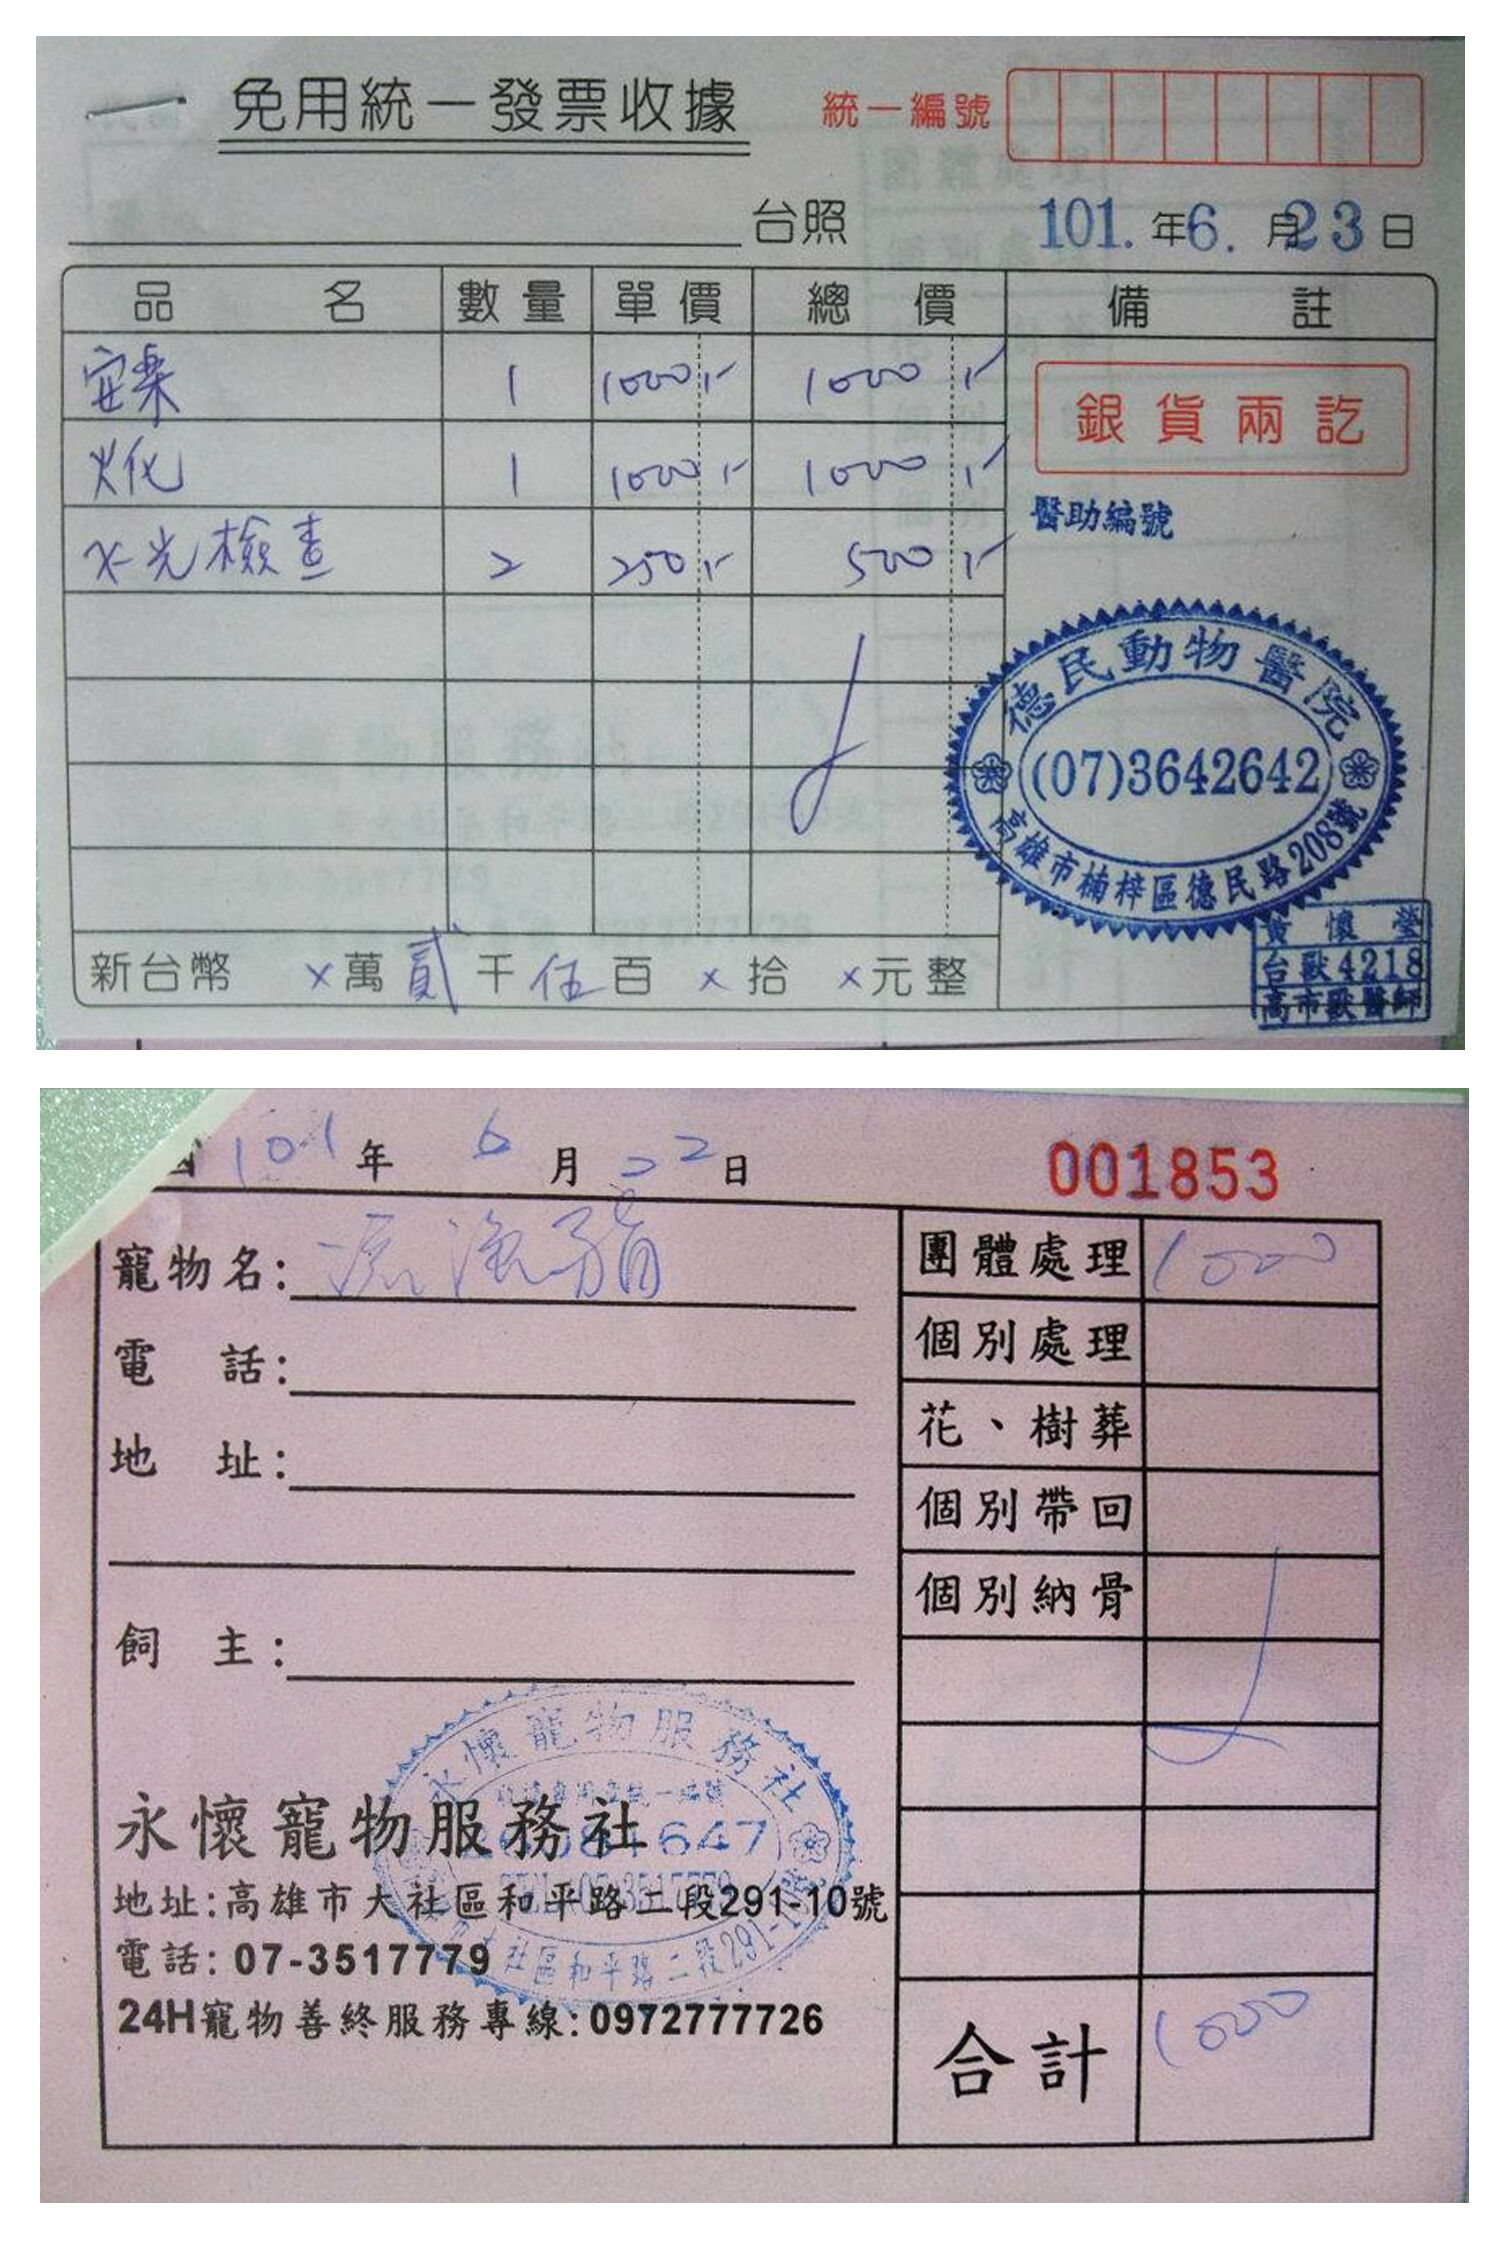 免用統一發票收據 統一編號
台照 101.年6.月23日
品名 數量 單價 總價 備註
安樂 1 1000.- 1000.-
火化 1 1000.- 1000.-
X-光檢查 2 250.- 500.-
銀貨兩訖
醫助編號
德民動物醫院
(07)3642642
高雄市楠梓區德民路208號
黃懷瑩
台獸4218
高市獸醫師
新台幣 ×萬貳千伍百×拾×元整
101年6月22日 001853
寵物名:流浪貓
電話:
地址:
飼主:
團體處理 1000
個別處理
花、樹葬
個別帶回
個別納骨
合計 1000
永懷寵物服務社
永懷寵物服務社
地址:高雄市大社區和平路二段291-10號
電話: 07-3517779
大社區和平路二段291-10號
24H寵物善終服務專線:0972777726